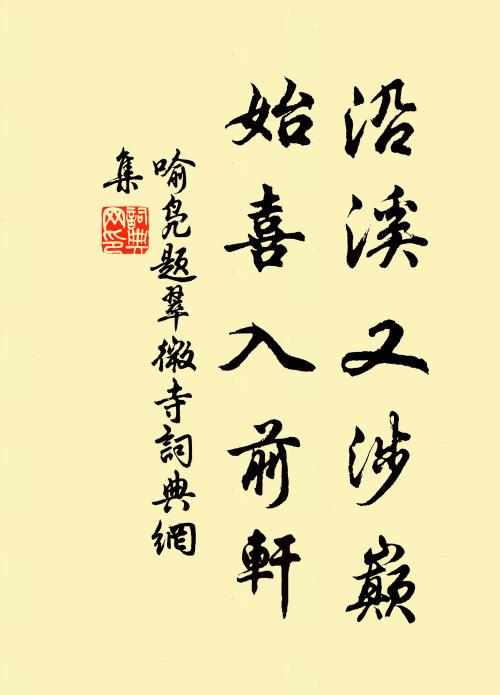 沿溪又涉巔
始喜入前軒
喻鳧題翠微寺詞典網
集
詞典
网印